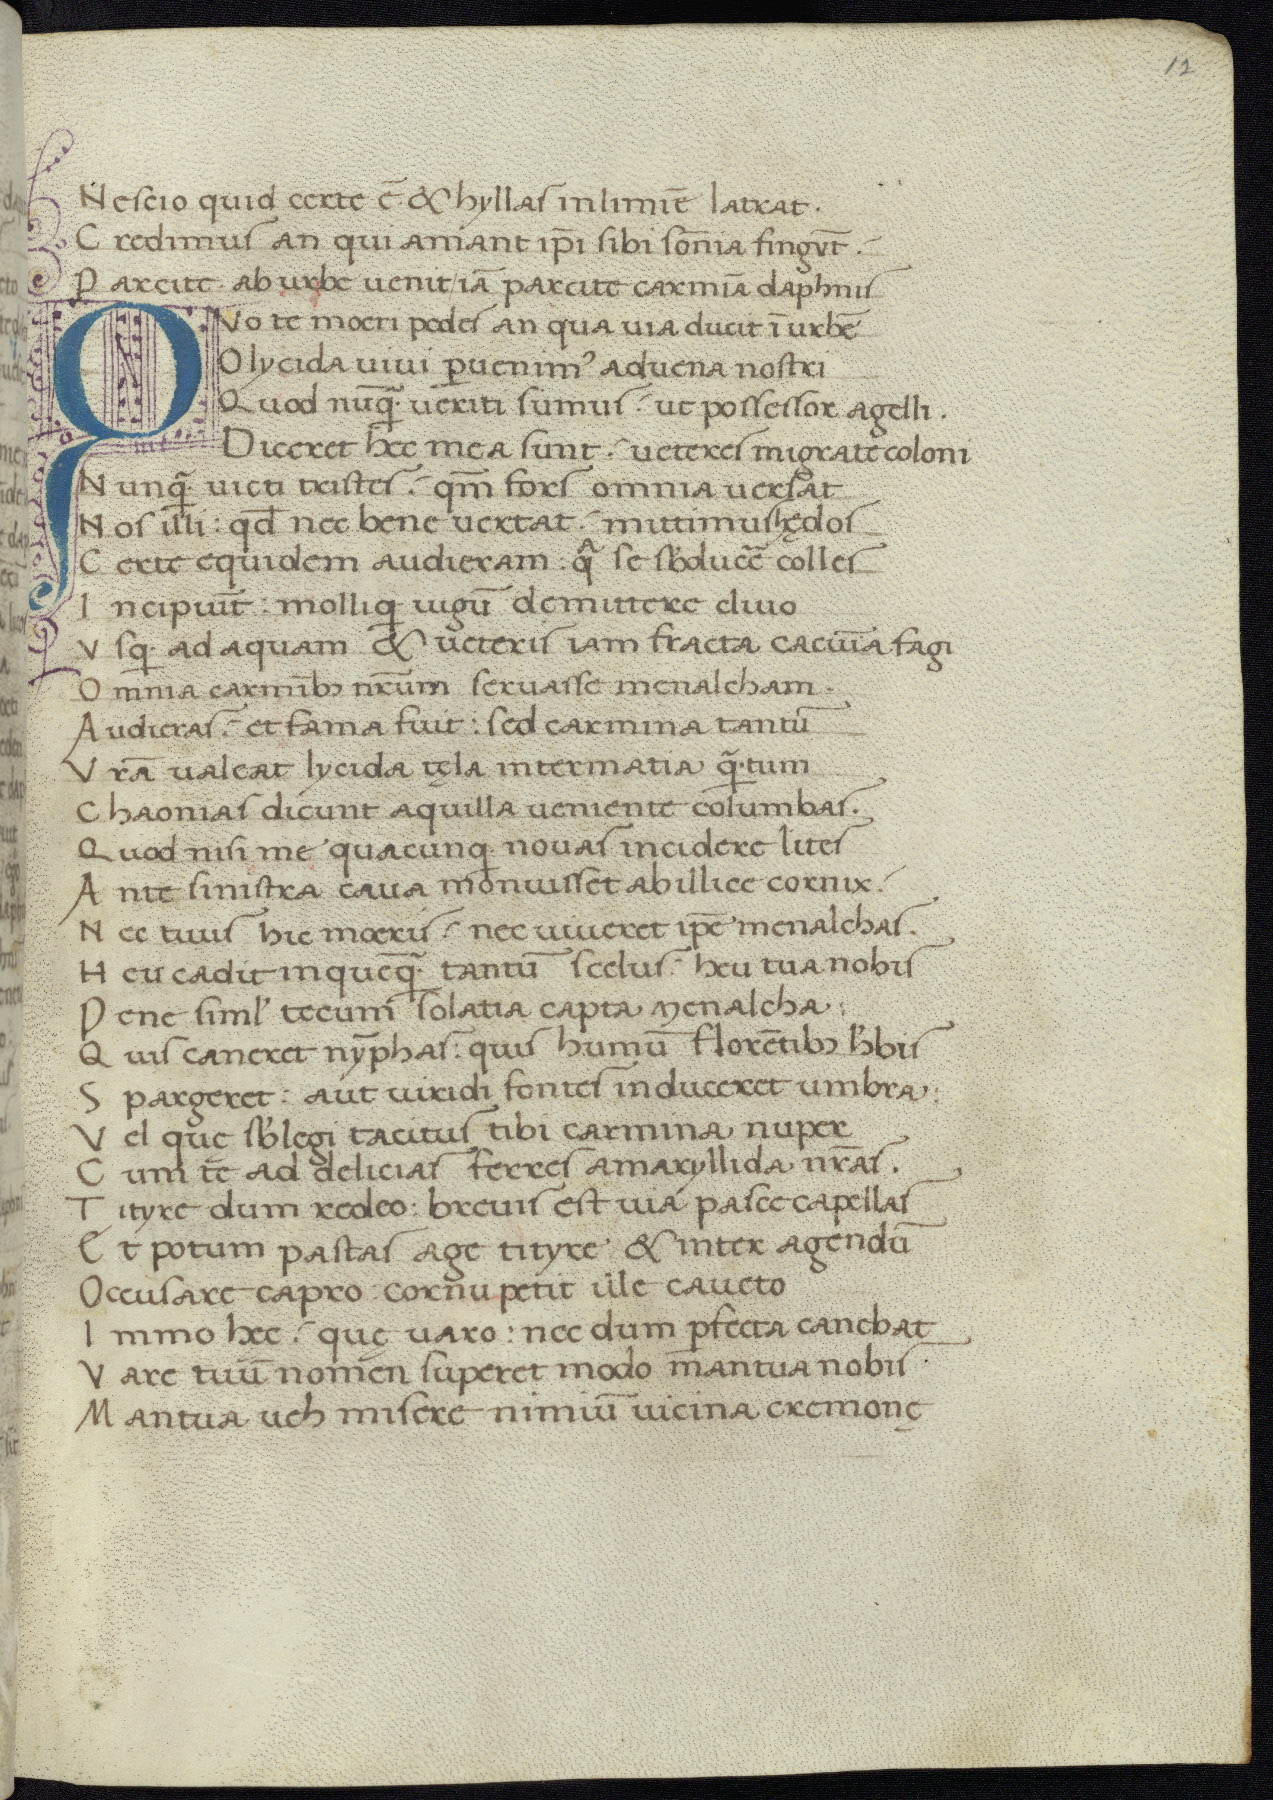 12
Nescio quid certe ē & hyllas in limīe latrat.
Credimus an qui amant ip̄i sibi som̄ia fingūt.
Parcite ab urbe uenit iā parcite carmīa daphnis
QVo te moeri pedes an qua uia ducit ī urbē
O lycida uiui ꝑuenimꝰ aduena nostri
Quod nūq̄ʒ ueriti sumus ut possessor agelli.
Diceret hec mea sunt ueteres migrate coloni
Nunq̄ʒ uicti tristes qm̄ fors omnia uersat
Nos illi: qd̄ nec bene uertat mittimus hędos
Certe equidem audieram: qᵃ se sb'ducēe colles
Incipuīt: molliqʒ iugū demittere cliuo
Vsqʒ ad aquam & ueteris iam fracta cacuīa fagi
Omnia carmībꝫ nr̄um seruasse menalcham.
Audieras et fama fuit: sed carmina tantū
Vrā ualeat lycida tęla inter matia q̄ʒtum
Chaonias dicunt aquilla ueniente columbas.
Quod nisi me quacunqʒ nouas incidere lites
Ante sinistra caua monuisset ab illice cornix.
Nec tuus hic moeris nec uiueret ip̄e menalchas.
Heu cadit in quēq̄ʒ tantū scelus heu tua nobis
Pene siml' tecum solatia capta menalcha:
Quis caneret nȳphas: quis humū florētibꝫ h'bis
Spargeret: aut uiridi fontes induceret umbra:
Vel quę sb'legi tacitus tibi carmina nuper
Cum te ad delicias ferres amaryllida nr̄as.
Tityre dum redeo: breuis est uia pasce capellas
Et potum pastas age tityre & inter agendū
Occusare capro cornu petit ille caueto
Immo hec quę uaro: nec dum ꝑfecta canebat
Vare tuū nomen superet modo mantua nobis
Mantua ueh misere nimiū uicina cremonę